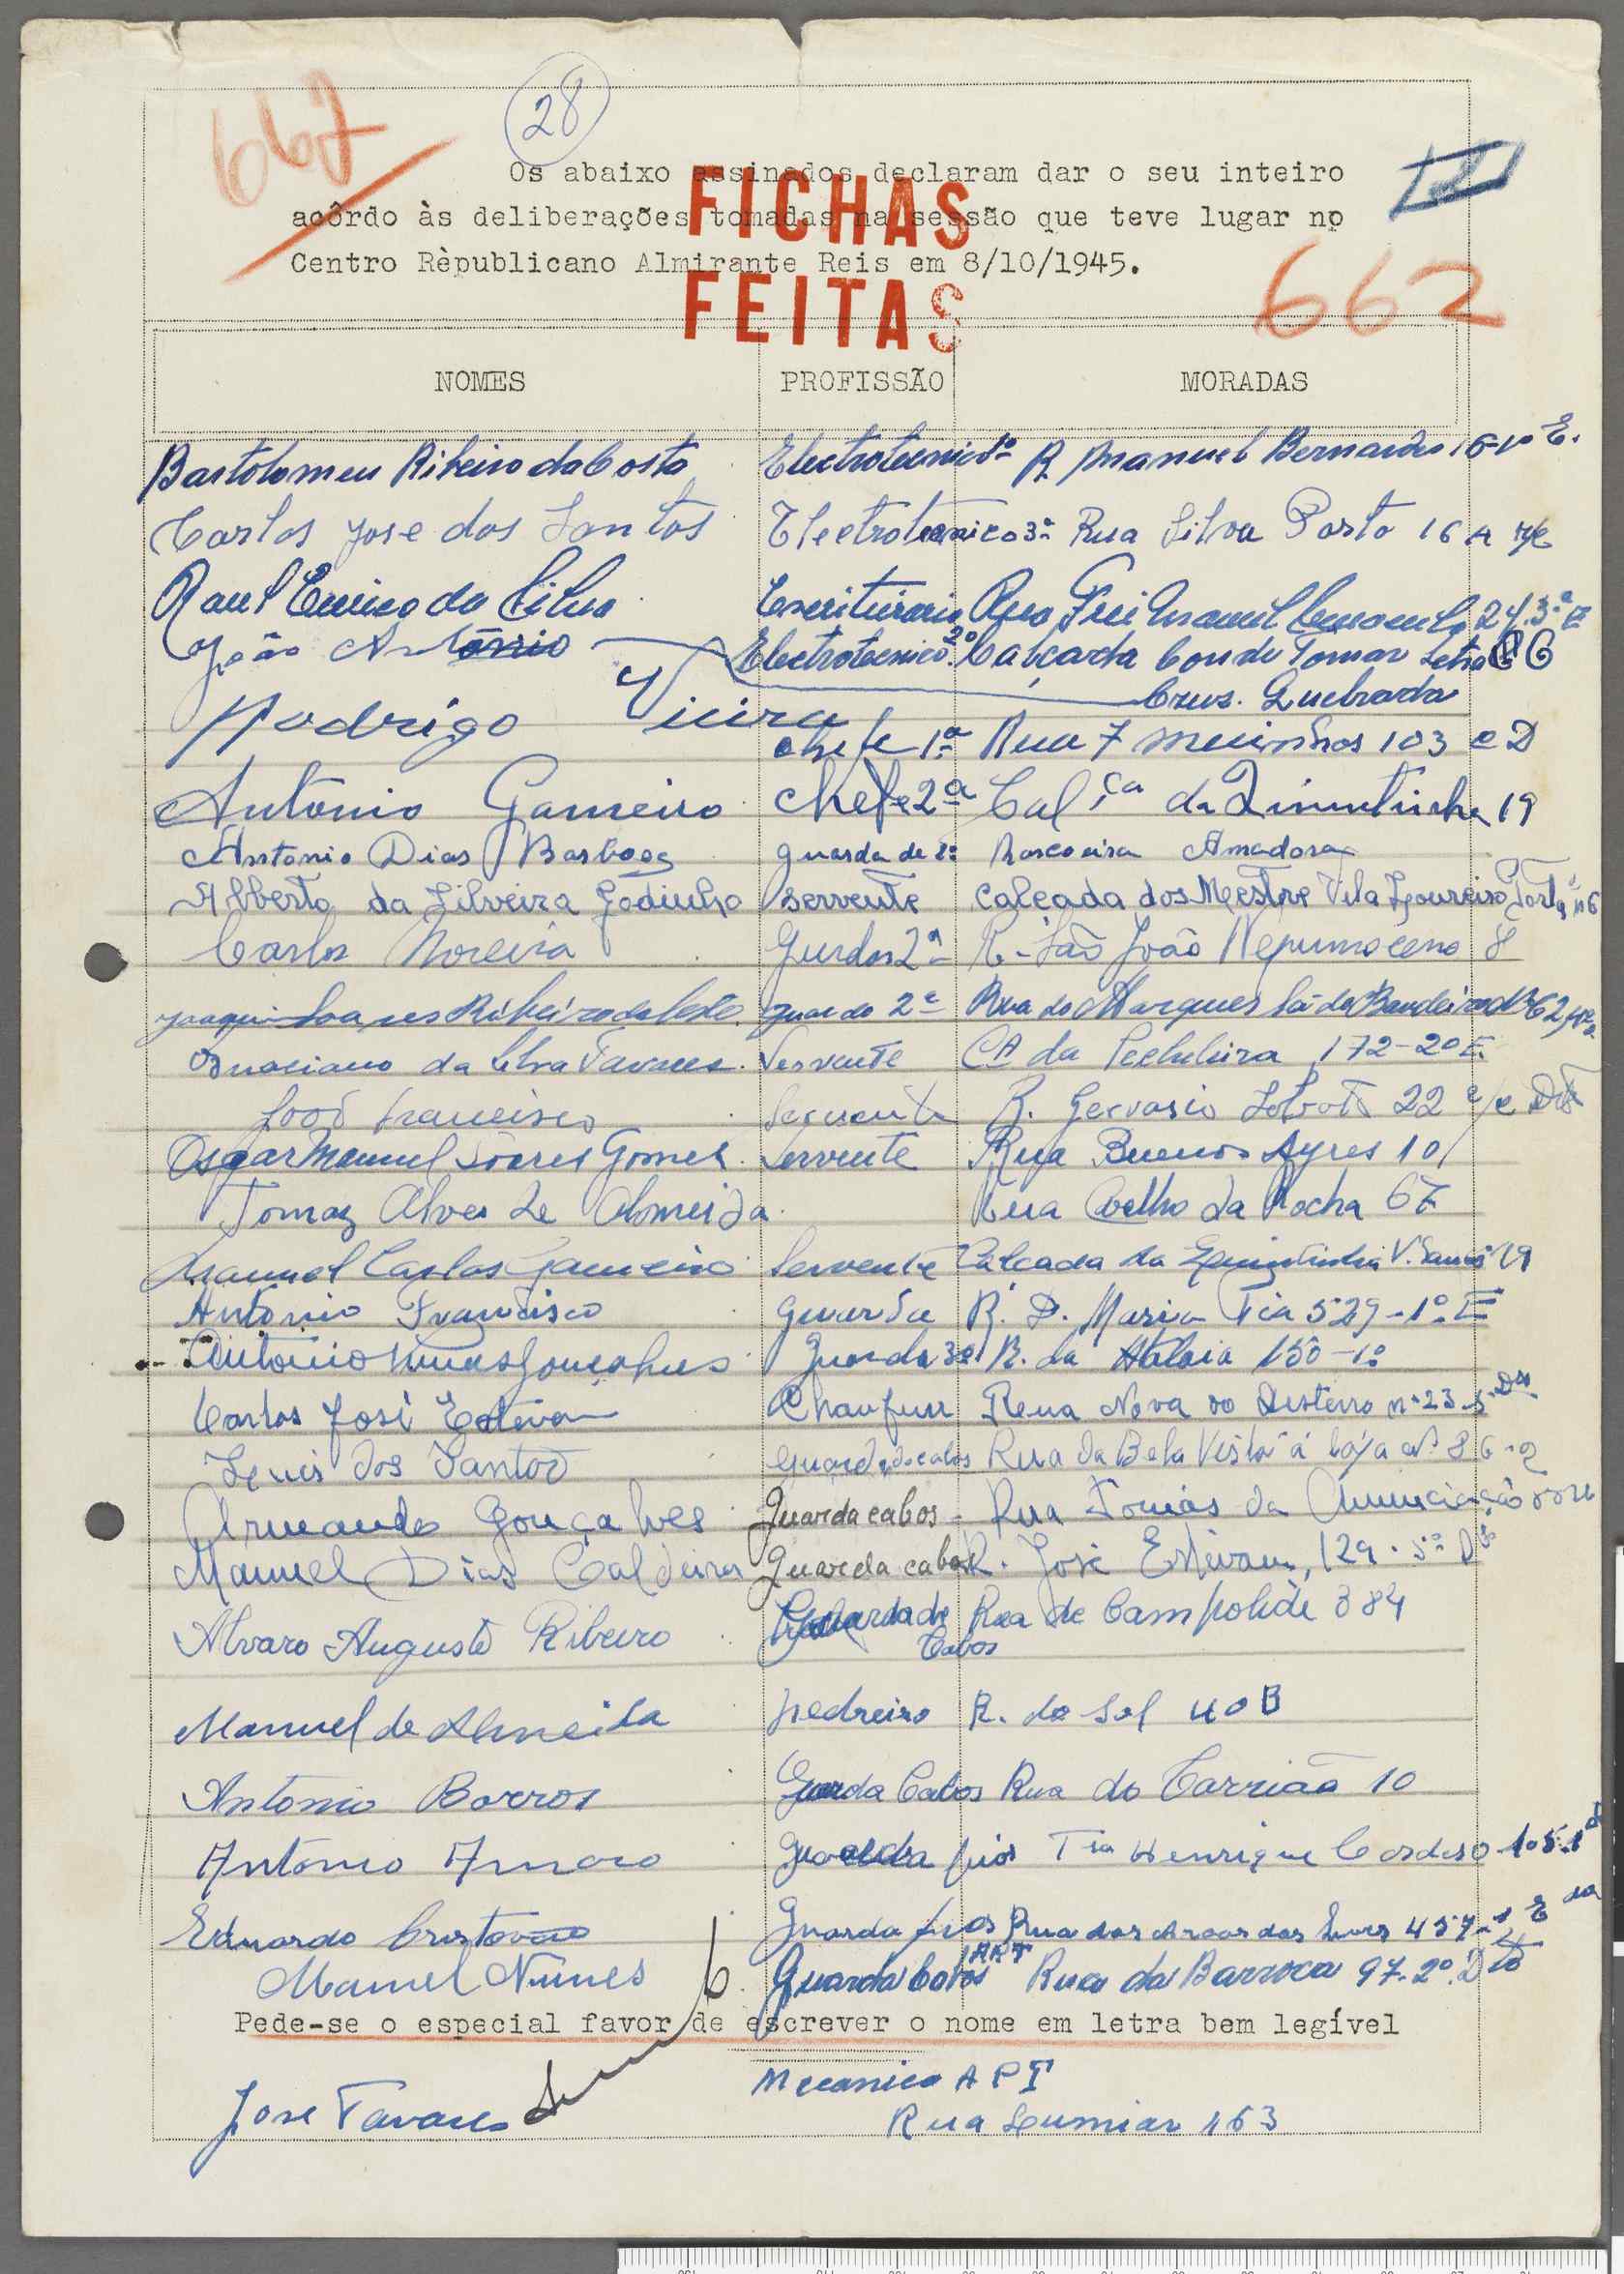 667
28
Os abaixo assinados declaram dar o seu inteiro
acôrdo às deliberações tomadas na sessão que teve lugar no
Centro Rèpublicano Almirante Reis em 8/10/1945.
FICHAS
FEITAS
662
NOMES PROFISSÃO MORADAS
Bartolomeu Ribeiro da Costa Electrotecnico 1º R. Manuel Bernardes 16-1º E.
Carlos Jose dos Santos Electrotecnico 3ª Rua Silva Porto 16 A
Raul da Silva Escriturario Rua Frei Manuel 24.3º E
João António Electrotecnico 2º Calçada Conde Tomar Letra C
Cruz. Quebrada
Rodrigo Vieira chefe 1ª Rua 7 moinhos 103 D
António Gameiro Chefe 2ª Calçª da Quintinha 19
Antonio Dias Barbosa guarda de Amadora
Alberto da Silveira Godinho servente calçada dos Mestre Vila Loureiro Porta nº 6
Carlos Moreira 2ª R. São João Nepumoceno 8
Joaquim Soares Ribeiro guarda 2ª Rua do Marques Sá da Bandeira 62
da Silva Tavares. Servente Cª da 172-2º E.
João Francisco Servente R. Gervasio Lobato 22
Oscar Manuel Soares Gomes Servente Rua Buenos Ayres 10
Tomaz Alves de Almeida Rua Coelho da Rocha 67
Manuel Carlos Gameiro Servente Calçada da 19
António Francisco Guarda R. D. Maria Pia 529-1º E
António Nunes Gonçalves Guarda 3ª R. da Atalaia 150-1º
Carlos José Esteva Chaufeur Rua Nova do Desterro nº 23
Luis dos Santos Guarda de cabos Rua da Bela Vista á 86-
Armando Gonçalves Guarda cabos - Rua Tomás da Anunciação
Manuel Dias Caldeira Guarda cabos R. José Estevam, 129
Alvaro Augusto Ribeiro Guarda de Rua de Campolide 384
Cabos
Manuel de Almeida pedreiro R. do Sol 40 B
Antonio Barros Guarda Cabos Rua do Carrião 10
António Amaro Guarda fios Tª Henrique Cardoso 105.1º
Eduardo Cristovão Guarda fios Rua das
Manuel Nunes Guarda Cabos APT Rua da Barroca 97-2º Dto
Pede-se o especial favor de escrever o nome em letra bem legível
Jose Tavares Mecanico APT
Rua Lumiar 163